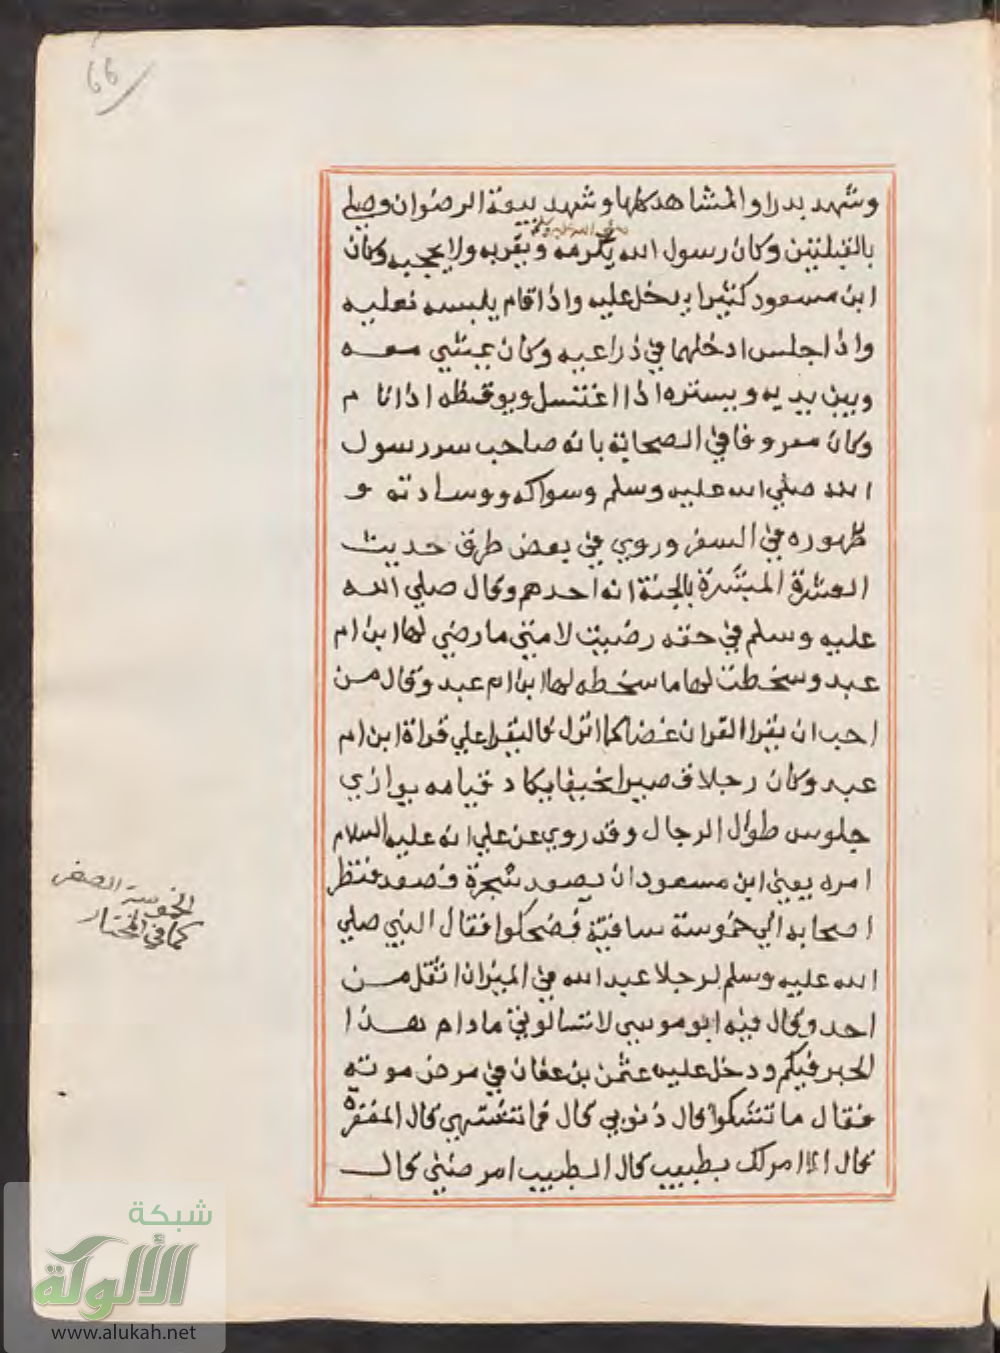 66
وشهد بدرا والمشاهد كلها وشهد بيعة الرضوان وصلي
بالقبلتين وكان رسول الله صلى الله عليه وسلم يكرمه ويقربه ولا يحجبه وكان
ابن مسعود كثيرا يدخل عليه واذا قام يلبسه نعليه
واذا جلس ادخلهما في ذراعيه وكان يمشي معه
وبين يديه ويستره اذا اغتسل ويوقظه اذا نام
وكان معروفا في الصحابة بانه صاحب سر رسول
الله صلي الله عليه وسلم وسواكه ووسادته و
طهوره في السفر وروي في بعض طرق حديث
العشرة المبشرة بالجنة انه احدهم وقال صلي الله
عليه وسلم في حقه رضيت لامتي ما رضي لها ابن ام
عبد وسخطت لها ما سخطه لها ابن ام عبد وقال من
احب ان يقرا القران غضا كما انزل فاليقرا علي قراة ابن ام
عبد وكان رجلا قصيرا نحيفا يكاد قيامه يوازي
جلوس طوال الرجال وقد روي عن علي انه عليه السلام
امره يعني ابن مسعود ان يصعد شجرة فصعد فنظر
اصحابه الي حموسة ساقيه فضحكوا فقال النبي صلي
الله عليه وسلم لرجلا عبد الله في الميزان اثقل من
احد وقال فيه ابو موسي لا تسالوني ما دام هذا
الحبر فيكم ودخل عليه عثمن بن عفان في مرض موته
فقال ما تشكوا قال ذنوبي قال فما تشتهي قال المغفرة
قال الا امر لك بطبيب قال الطبيب امرضني قال
الصغر
كما في المختار
شبكة
الألوكة
www.alukah.net